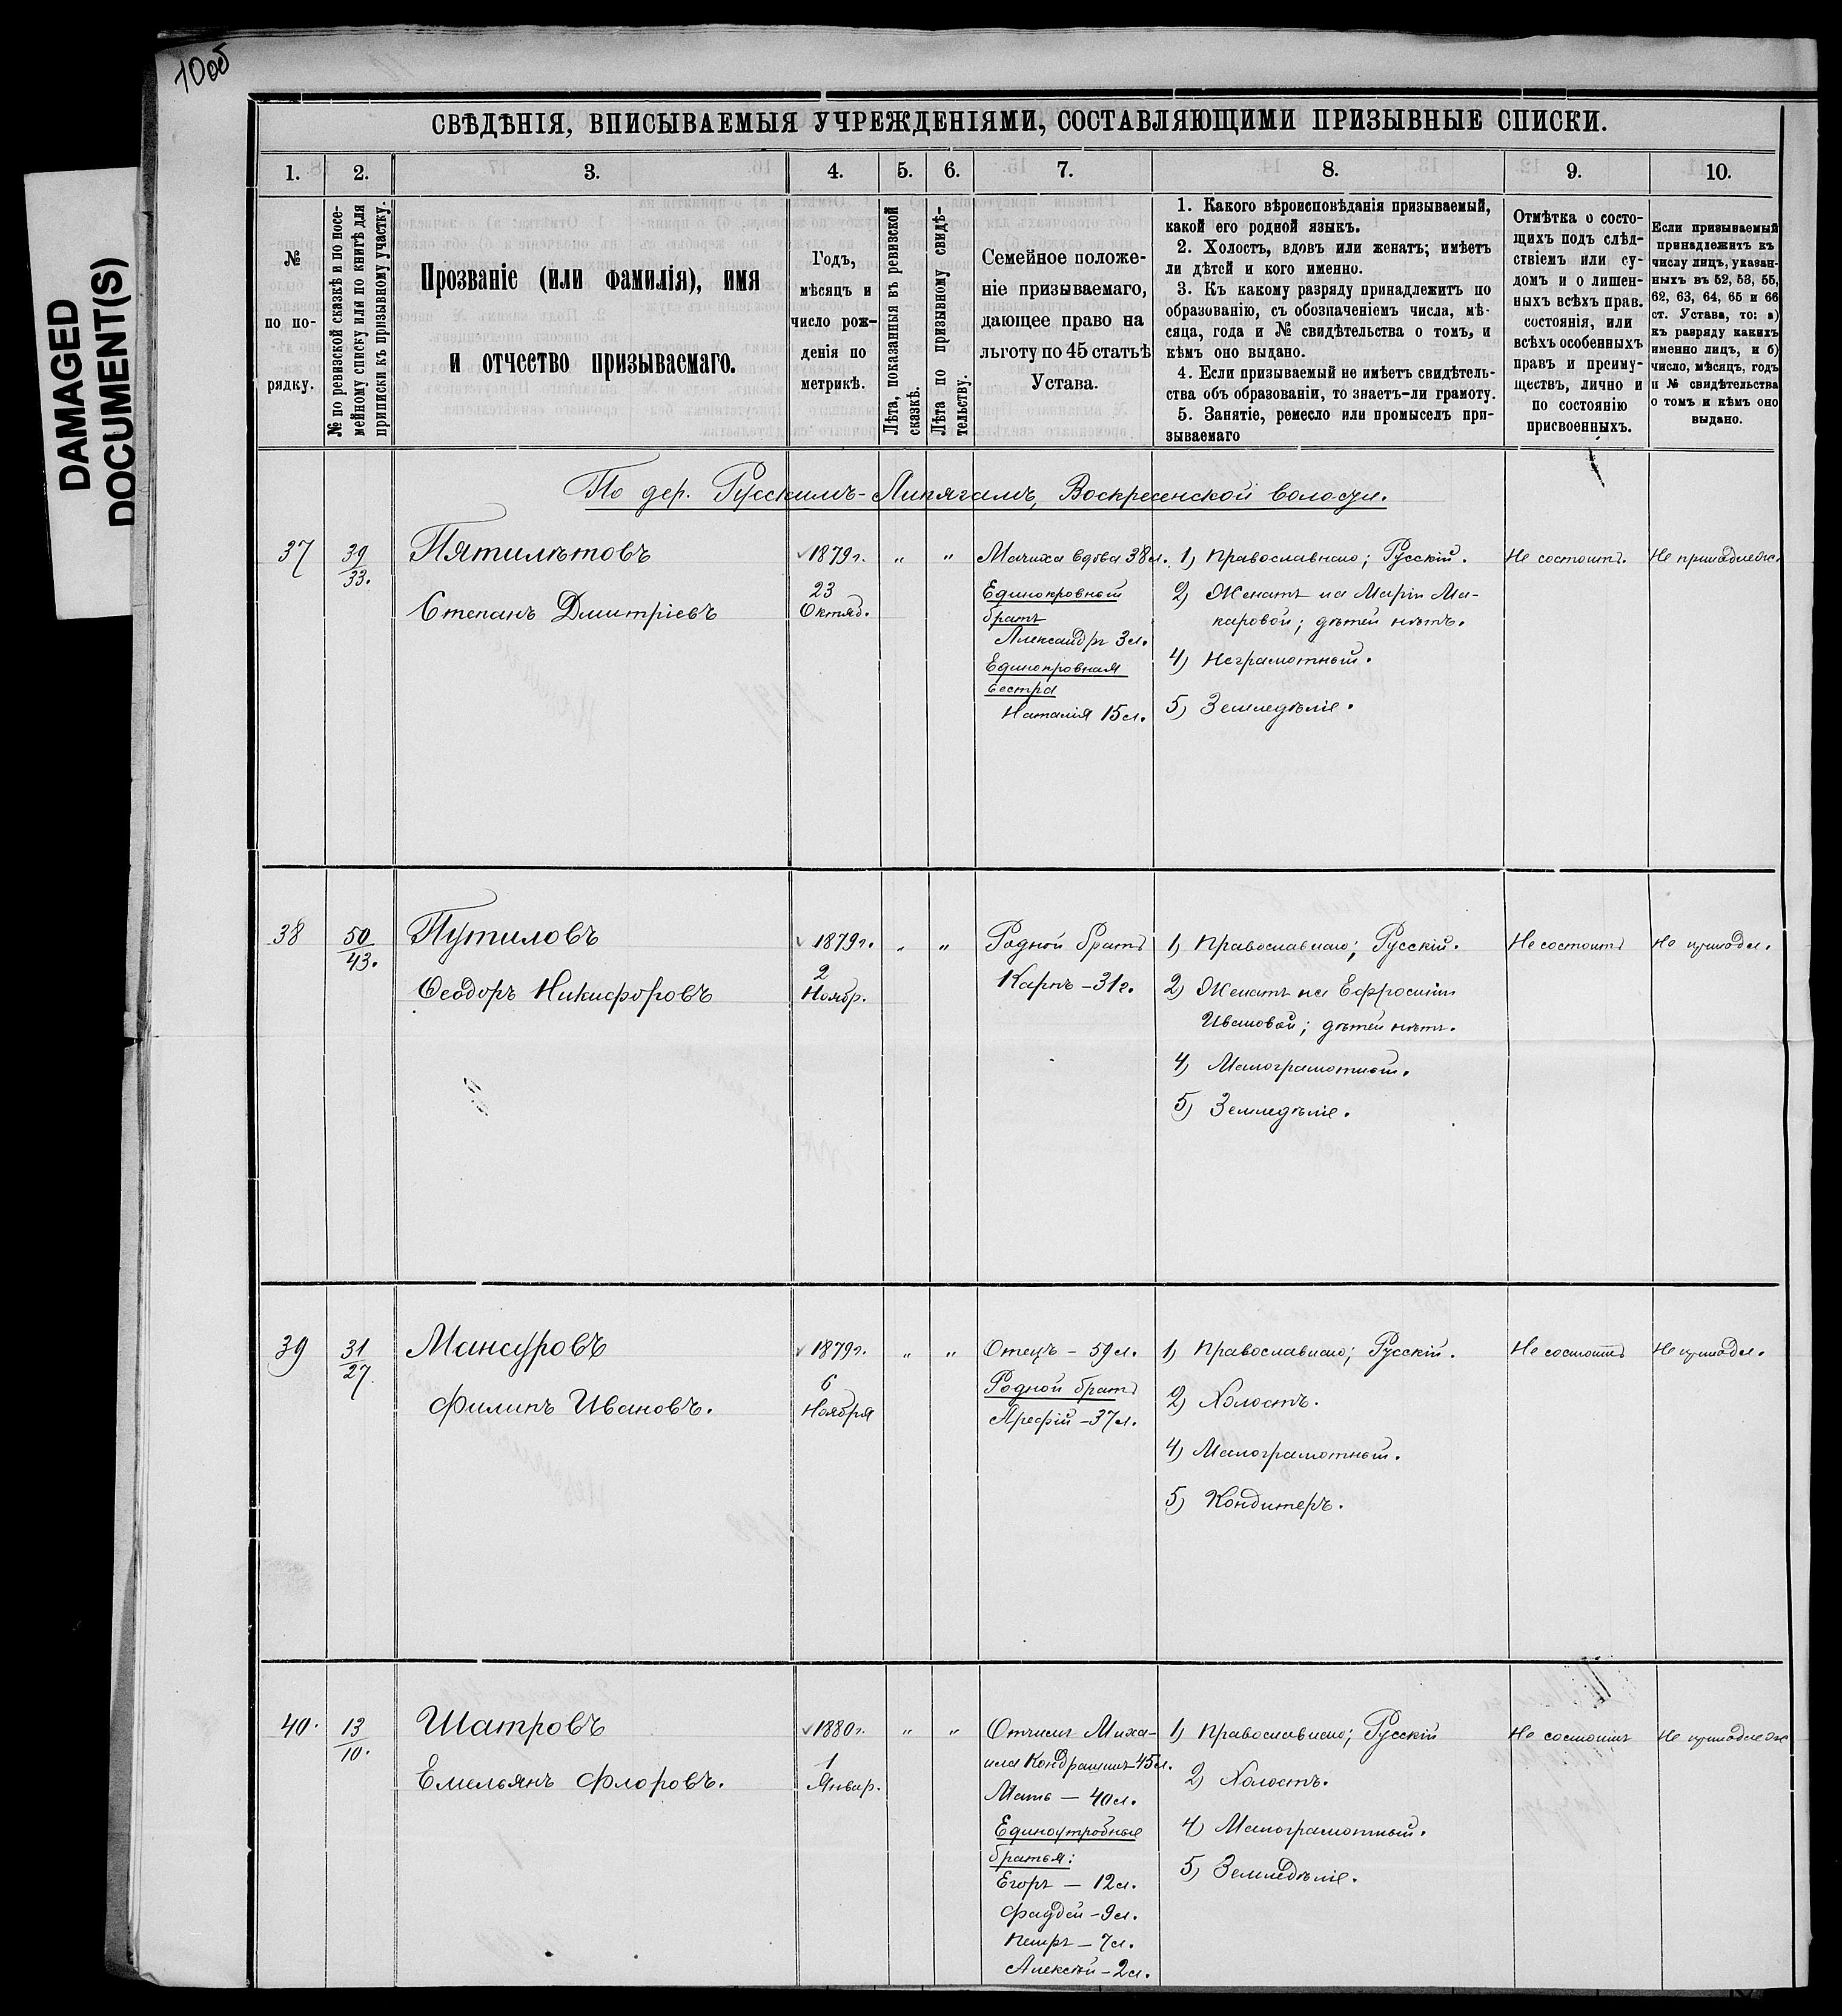 10об
DAMAGED
DOCUMENT(S)
СВѢДѢНІЯ, ВПИСЫВАЕМЫЯ УЧРЕЖДЕНІЯМИ, СОСТАВЛЯЮЩИМИ ПРИЗЫВНЫЕ СПИСКИ.
1. 2. 3. 4. 5. 6. 7. 8. 9. 10.
№
по по-
рядку.
№ по ревизской сказкѣ и по посе-
мейному списку или по книгѣ для
приписки къ призывному участку.
Прозваніе (или фамилія), имя
и отчество призываемаго.
Годъ,
мѣсяцъ и
число рож-
денія по
метрикѣ.
Лѣта, показанныя въ ревизской
сказкѣ.
Лѣта по призывному свидѣ-
тельству.
Семейное положе-
ніе призываемаго,
дающее право на
льготу по 45 статьѣ
Устава.
1. Какого вѣроисповѣданія призываемый,
какой его родной языкъ.
2. Холостъ, вдовъ или женатъ; имѣетъ
ли дѣтей и кого именно.
3. Къ какому разряду принадлежитъ по
образованію, съ обозначеніемъ числа, мѣ-
сяца, года и № свидѣтельства о томъ, и
кѣмъ оно выдано.
4. Если призываемый не имѣетъ свидѣтель-
ства объ образованіи, то знаетъ-ли грамоту.
5. Занятіе, ремесло или промыселъ при-
зываемаго
Отмѣтка о состо-
щихъ подъ слѣд-
ствіемъ или су-
домъ и о лишен-
ныхъ всѣхъ прав.
состоянія, или
всѣхъ особенныхъ
правъ и преиму-
ществъ, лично и
по состоянію
присвоенныхъ.
Если призываемый
принадлежитъ къ
числу лицъ, указан-
ныхъ въ 52, 53, 55,
62, 63, 64, 65 и 66
ст. Устава, то: а)
къ разряду какихъ
именно лицъ, и б)
число, мѣсяцъ, годъ
и № свидѣтельства
о томъ и кѣмъ оно
выдано.
По дер. Русскимъ-Липягамъ, Воскресенской волости.
37
39
33.
Пятилѣтовъ
Степанъ Дмитріевъ
1879 г.
23
Октяб.
" "
Мачиха вдова 38 л.
Единокровный
братъ
Александръ 3 л.
Единокровная
сестра
Наталія 15 л.
1) Православнаго; Русскій.
2) Женатъ на Маріи Ма-
каровой; дѣтей нѣтъ.
4) Неграмотный.
5) Земледѣліе.
Не состоитъ.
Не принадлеж.
38
50
43.
Путиловъ
Ѳеодоръ Никифоровъ
1879 г.
2
Ноябр.
" "
Родной братъ
Карпъ - 31 г.
1) Православнаго; Русскій.
2) Женатъ на Ефросиніи
Ивановой; дѣтей нѣтъ.
4) Малограмотный.
5) Земледѣліе.
Не состоитъ
Не принадл.
39
31
27.
Мансуровъ
Филипъ Ивановъ.
1879 г.
6
Ноября
" "
Отецъ - 59 л.
Родной братъ
Арефій - 37 л.
1) Православнаго; Русскій.
2) Холостъ.
4) Малограмотный.
5) Кондитеръ.
Не состоитъ
Не принадл.
40.
13
10.
Шатровъ
Емельянъ Флоровъ.
1880 г.
1
Январ.
" "
Отчимъ Миха-
илъ Кондрашинъ 45 л.
Мать - 40 л.
Единоутробные
братья:
Егоръ - 12 л.
Фаддей - 9 л.
Петръ - 7 л.
Алексѣй - 2 л.
1) Православнаго; Русскій
2) Холостъ.
4) Малограмотный.
5) Земледѣліе.
Не состоитъ
Не принадлеж